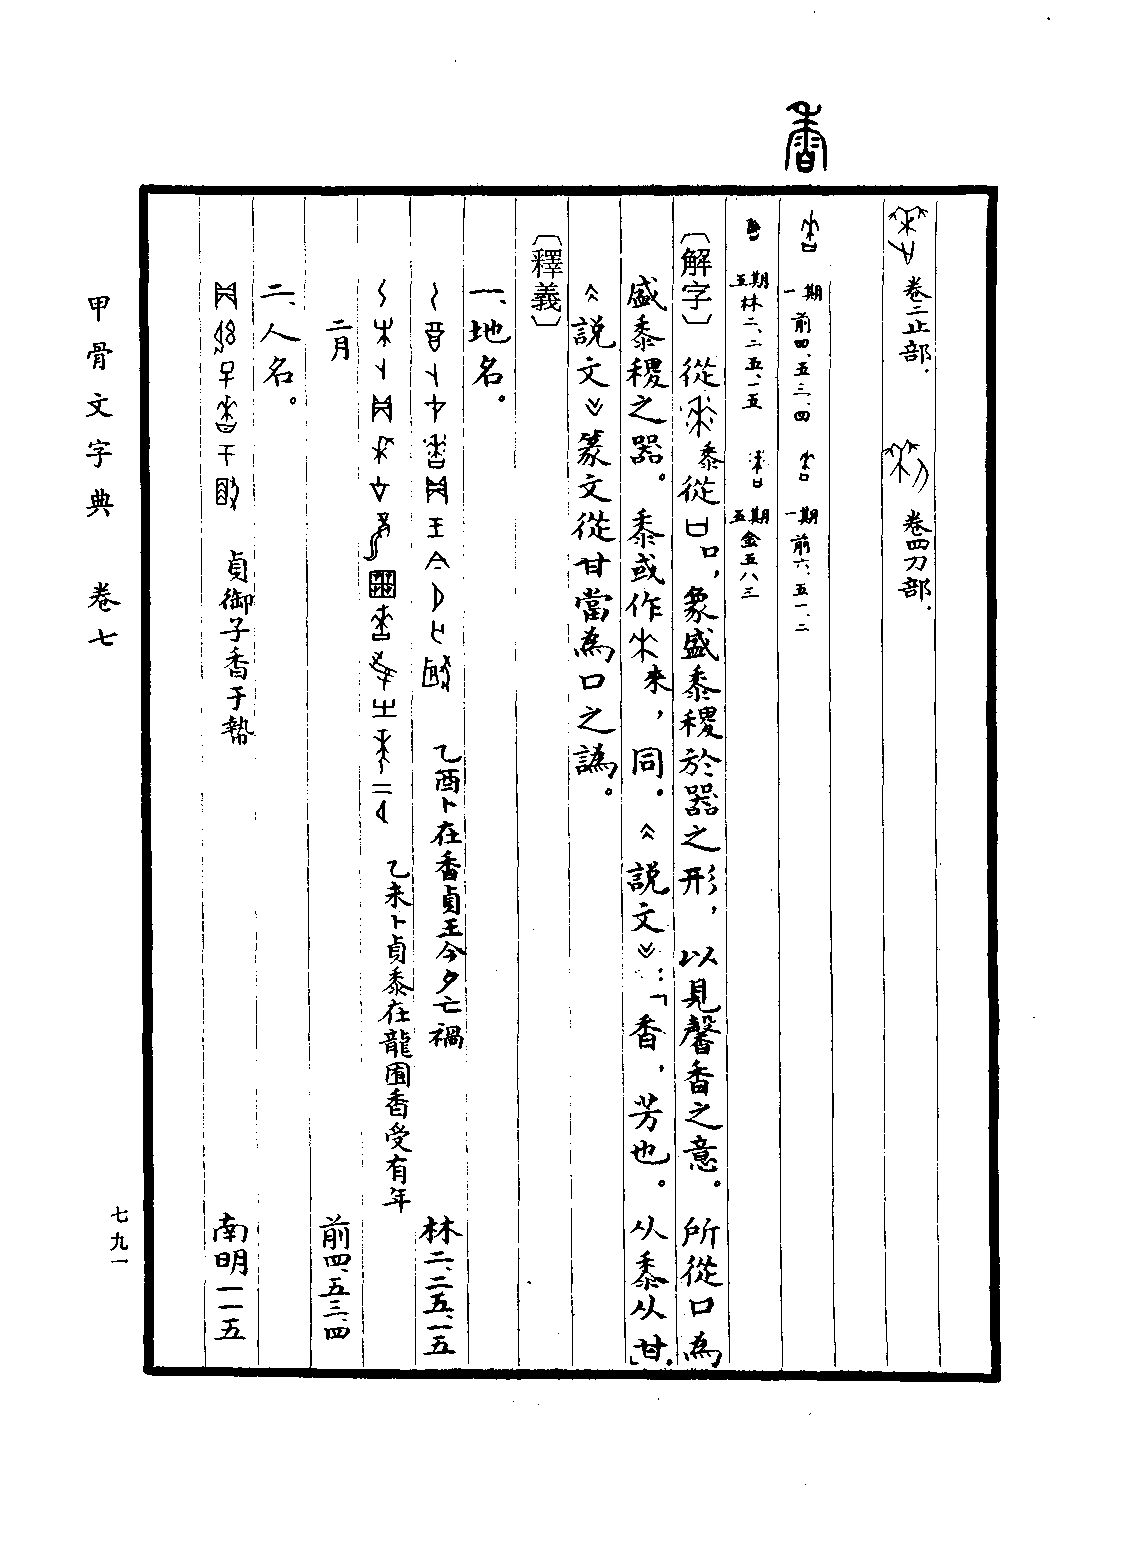 香
卷二止部．
卷四刀部．
一期 前四、五三、四
一期 前六、五一、二
五期 林二、二五、一五
五期 金五八三
〔解字〕從黍從口，象盛黍稷於器之形，以見馨香之意。所從口為
盛黍稷之器。黍或作來，同。《說文》：「香，芳也。从黍从甘。」
《說文》篆文從甘當為口之譌。
〔釋義〕
一、地名。
乙酉卜在香貞王今夕亡禍 林二、二五、一五
乙未卜貞黍在龍囿香受有年
二月 前四、五三、四
二、人名。
貞御子香于 南明一一五
甲骨文字典 卷七
七九一